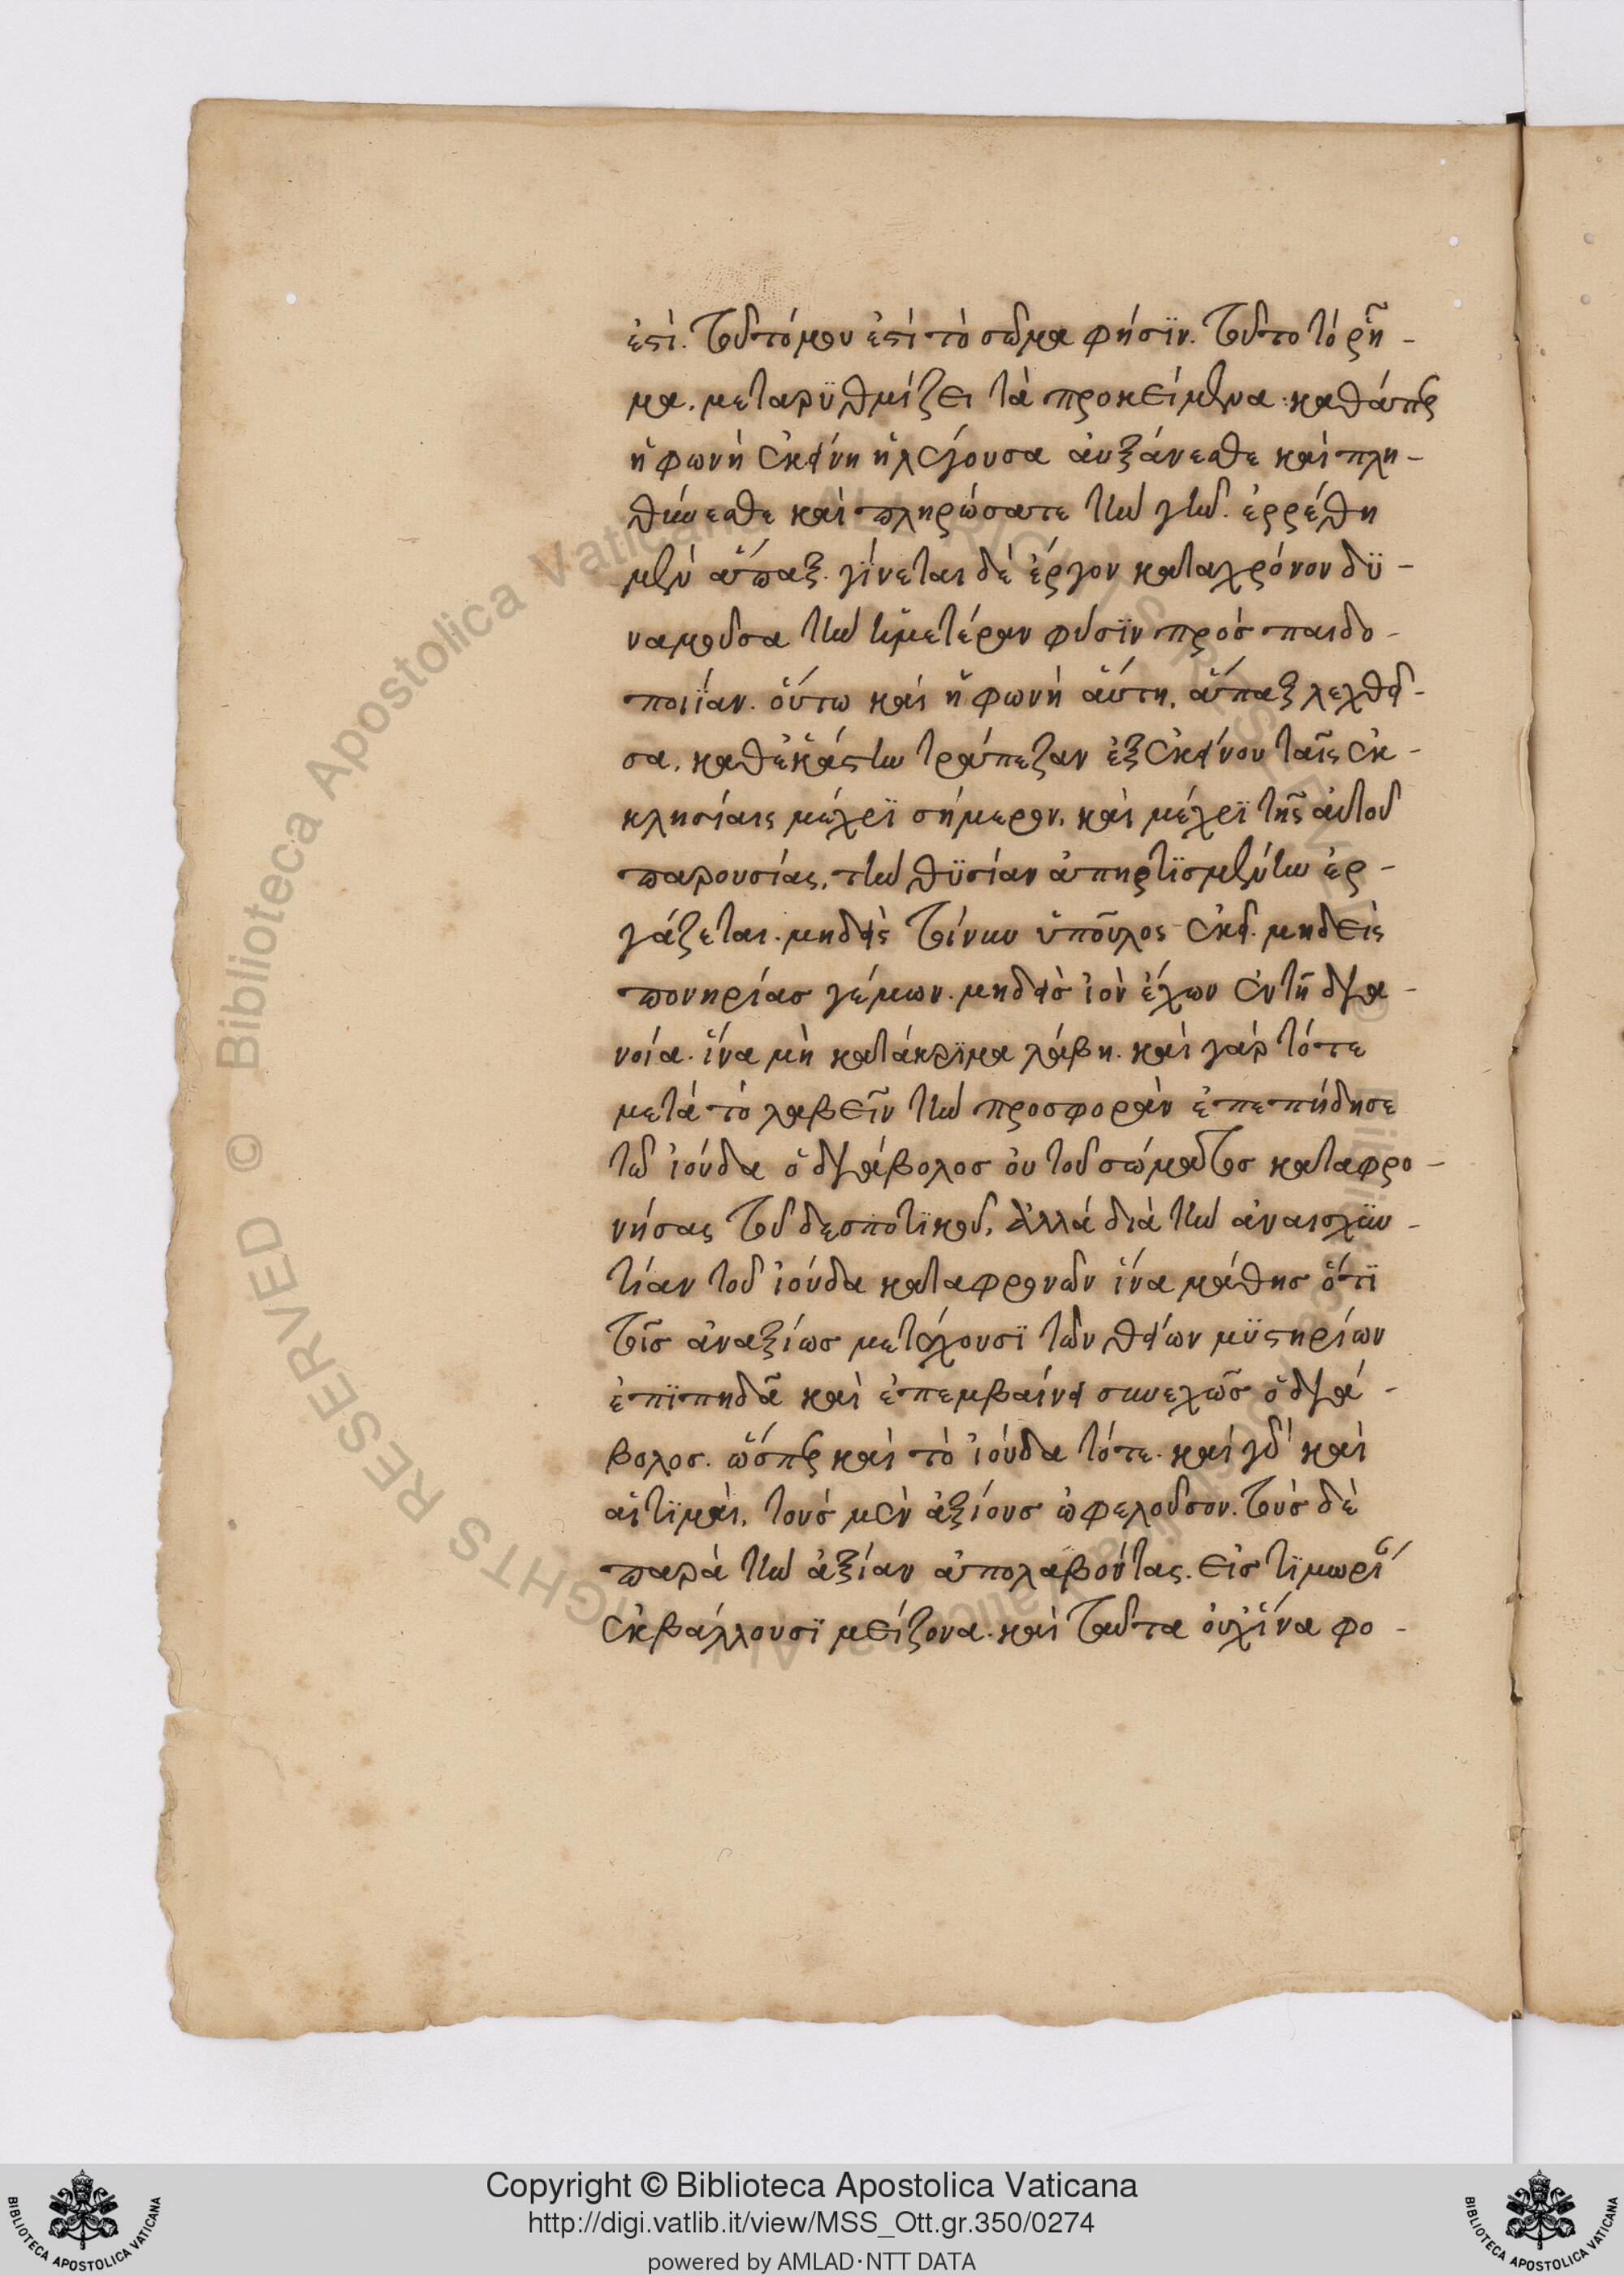 ἐστί. τοῦτό μου ἐστὶ τὸ σῶμα φήσϊν. τοῦτο τό ῥῆ -
μα. μεταρϋθμίζει τὰ προκείμενα· καθάπερ
ἡ φωνὴ ἐκείνη ἡ λέγουσα ἀυξάνεσθε καὶ πλη -
θύνεσθε καὶ πληρώσατε τὴν γῆν. ἐρρέθη
μὲν ἅπαξ. γίνεται δὲ ἔργον κατα χρόνον δϋ -
ναμοῦσα τὴν ἡμετέραν φύσϊν πρὸσ παιδο -
ποιΐαν. ὅυτω καὶ ἡ φωνὴ ἅυτη, ἅπαξ λεχθεῖ -
σα, καθ ἑκάστην τράπεζαν ἐξ ἐκείνου ταῖς ἐκ -
κλησίαις μέχρϊ σήμερον, καὶ μέχρϊ τῆς ἀυτοῦ
παρουσίας, τὴν θϋσίαν ἀπηρτϊσμένην ἐρ -
γάζεται. μηδεὶς τοίνυν ὕπουλος ἐκεῖ. μηδεὶς
πονηρίασ γέμων. μηδεὶσ ἰὸν ἔχων ἐν τῆ δια -
νοία. ἵνα μὴ κατάκρϊμα λάβη. καὶ γάρ τότε
μετὰ τὸ λαβεῖν τὴν προσφορὰν ἐπεπήδησε
τῶ ἰούδα ὁ διάβολοσ ὀυ τοῦ σώματοσ καταφρο -
νήσας τοῦ δεσποτϊκοῦ, ἀλλὰ διὰ τὴν ἀναισχϋν -
τίαν τοῦ ἰούδα καταφρονῶν ἵνα μάθησ ὅτϊ
τοῖσ ἀναξίωσ μετέχουσϊ τῶν θείων μϋστηρίων
ἐπϊπηδᾶ καὶ ἐπεμβαίνει συνεχῶσ ὁ διά -
βολοσ. ὥσπερ καὶ τὸ ἰούδα τότε. καὶ γὰρ καὶ
αἱ τϊμαὶ, τοὺσ μὲν ἀξίουσ ὠφελοῦσον. τοὺσ δὲ
παρὰ τὴν ἀξίαν ἀπολαβόντας. εἰσ τϊμωρί
ἐκβάλλουσϊ μείζονα. καὶ ταῦτα ὀυχ ἵνα φο -
Copyright © Biblioteca Apostolica Vaticana
http://digi.vatlib.it/view/MSS_Ott.gr.350/0274
powered by AMLAD·NTT DATA
BIBLIOTECA APOSTOLICA VATICANA
BIBLIOTECA APOSTOLICA VATICANA